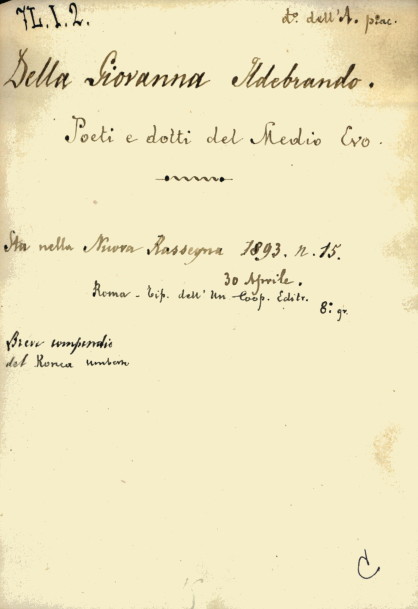 7L.I.2.
d.° dell'A. piac.
Della Giovanna Ildebrando.
Poeti e dotti del Medio Evo.
Sta nella Nuova Rassegna 1893. n. 15.
30 Aprile.
Roma - Tip. dell' Un. Coop. Editr.
8.° gr.
Breve compendio
del Ronca
C